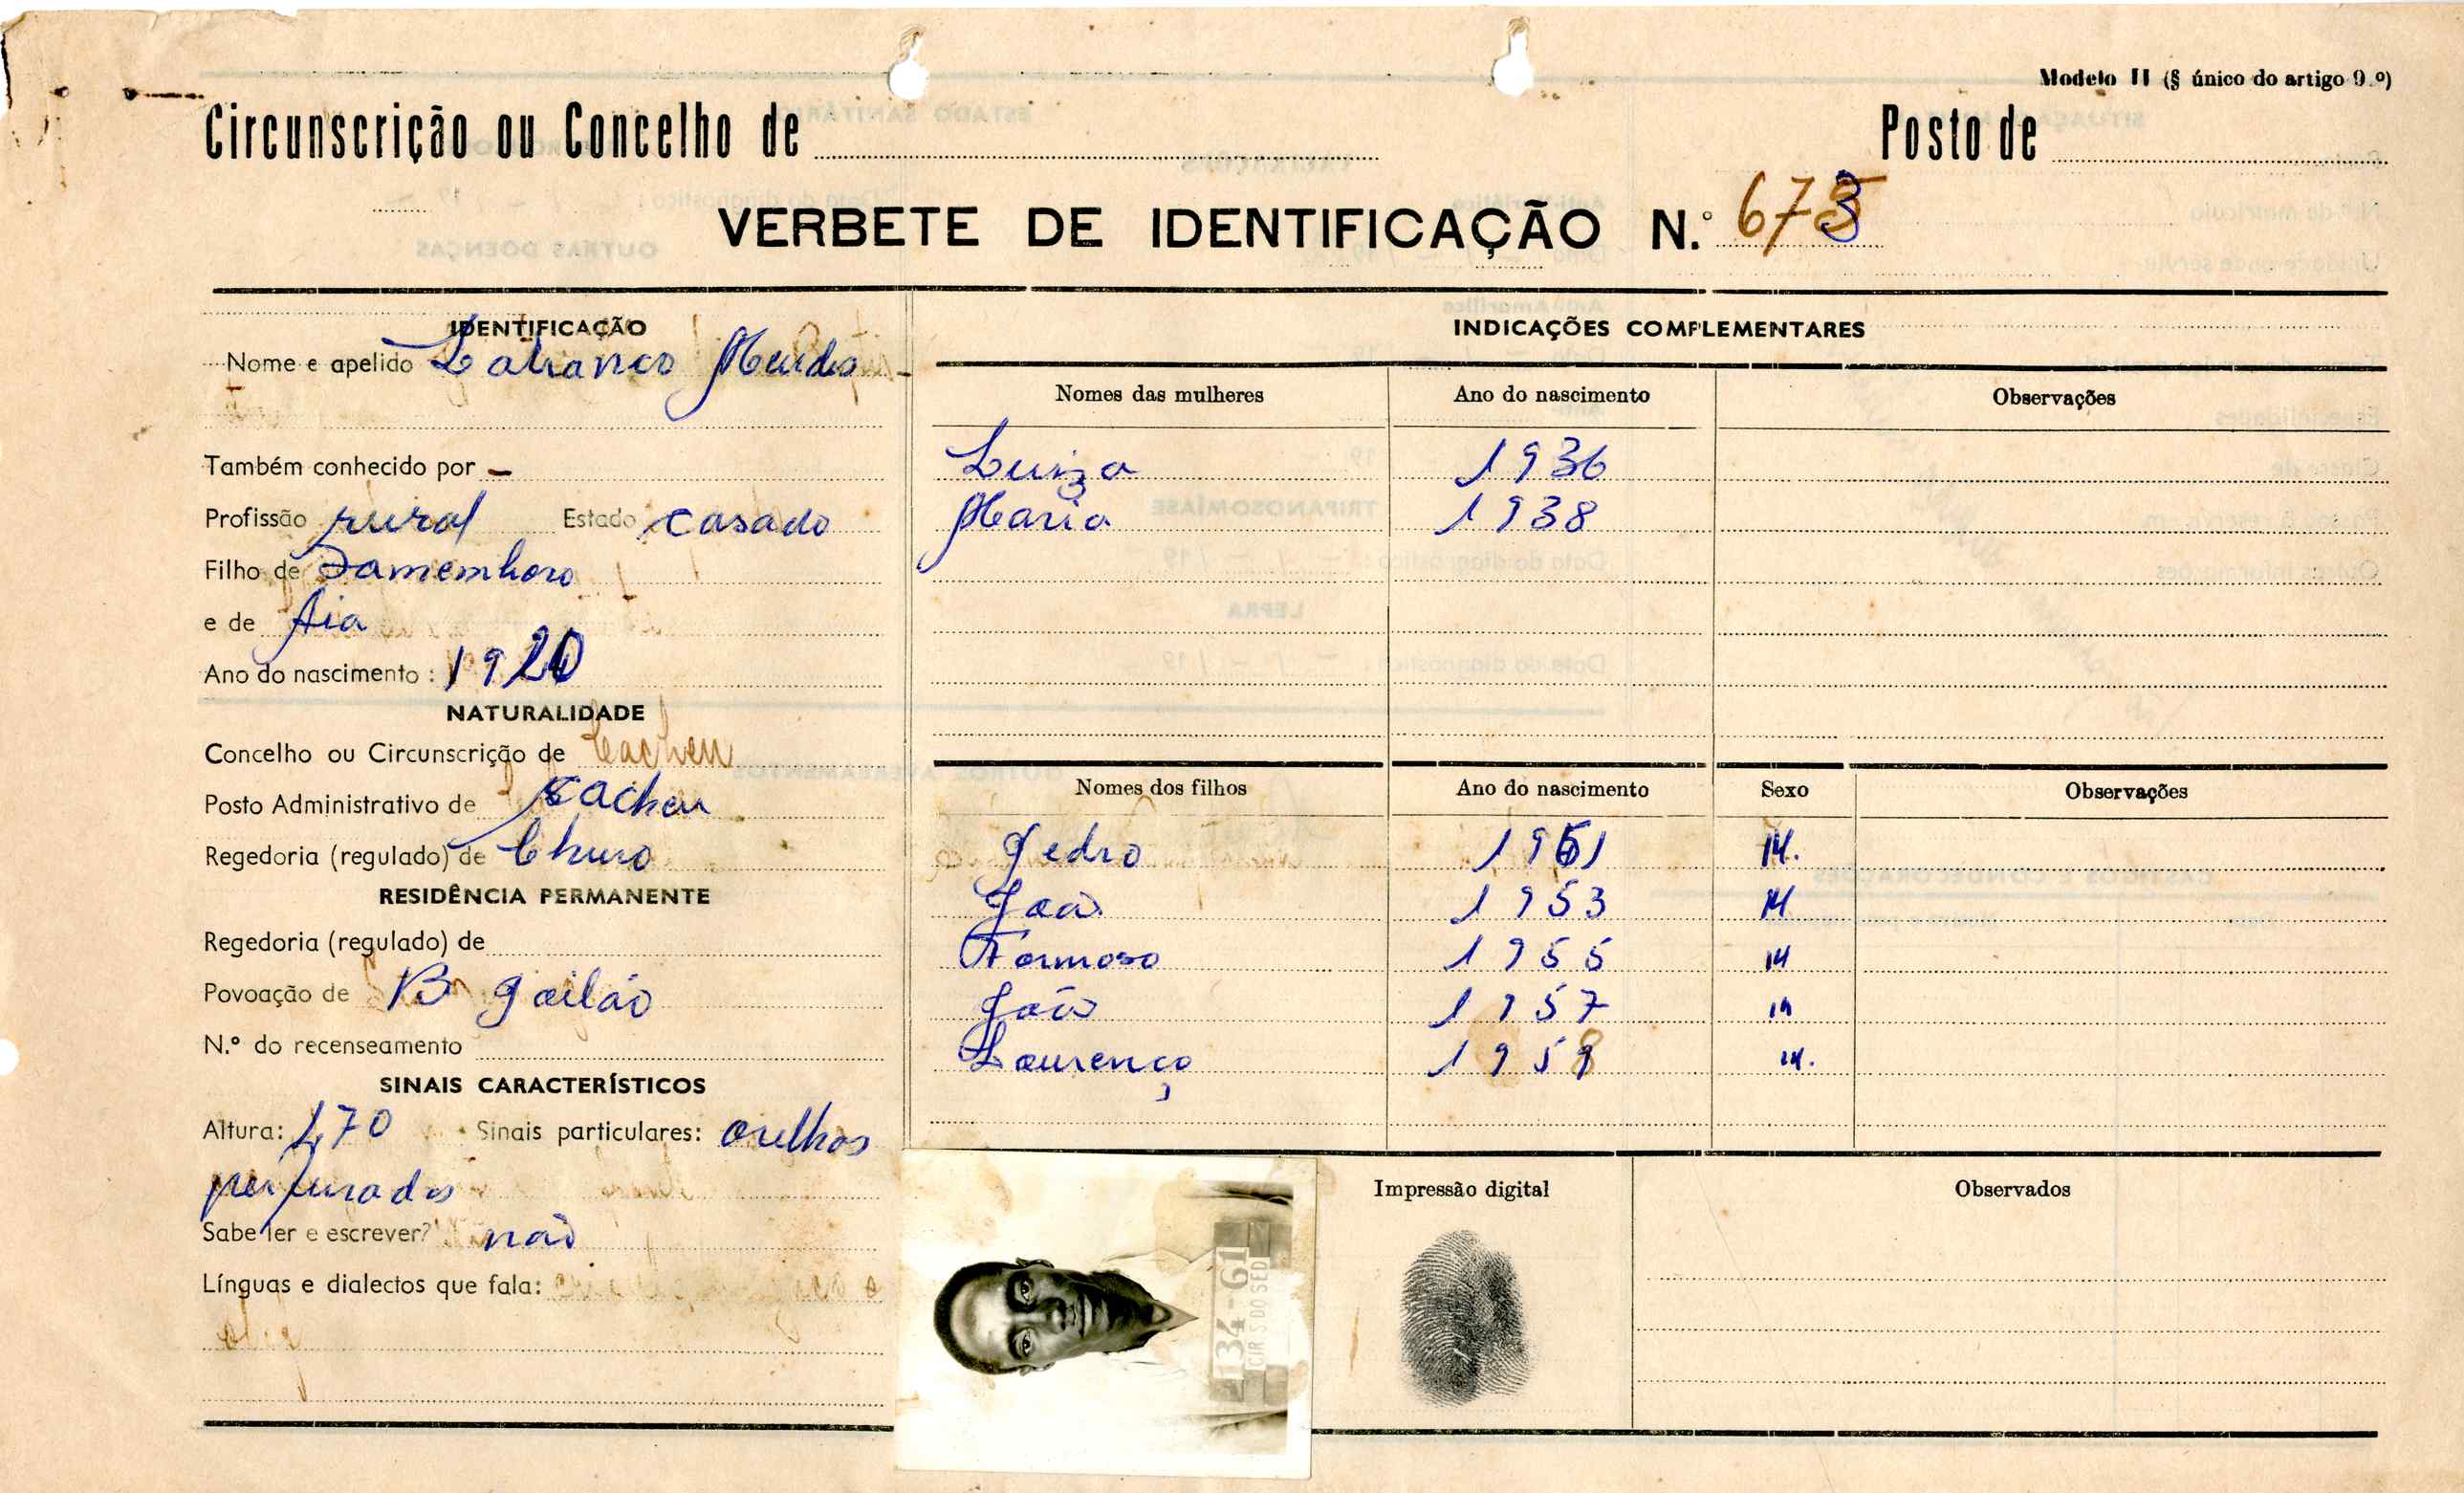 Modelo II (§ único do artigo 9.º)
Circunscrição ou Concelho de
Posto de
VERBETE DE IDENTIFICAÇÃO N.º 673
IDENTIFICAÇÃO
Nome e apelido Mendes
Também conhecido por –
Profissão rural Estado casado
Filho de
e de Aia
Ano do nascimento : 1920
NATURALIDADE
Concelho ou Circunscrição de Cacheu
Posto Administrativo de Cacheu
Regedoria (regulado) de Churo
RESIDÊNCIA PERMANENTE
Regedoria (regulado) de
Povoação de B
N.º do recenseamento
SINAIS CARACTERÍSTICOS
Altura: 1,70 Sinais particulares: orelhas
perfuradas
Sabe ler e escrever? não
Línguas e dialectos que fala:
INDICAÇÕES COMPLEMENTARES
Nomes das mulheres Ano do nascimento Observações
Luiza 1936
Maria 1938
Nomes dos filhos Ano do nascimento Sexo Observações
Pedro M.
João 1953 M
Formoso 1955 M
João 1957 M
Lourenço M.
134-61
CIR S DOSED
Impressão digital
Observados